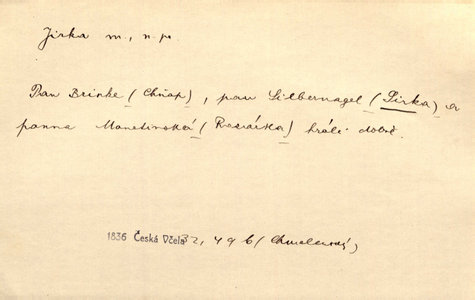 Jirka m, n. pr.
Pan Brinke (Chňap), pan Silbernagel (Jirka) a
panna Manetínská (Rozárka) hráli dobře.
1836 Česká Včela 32, 49 b (Chmelenský)